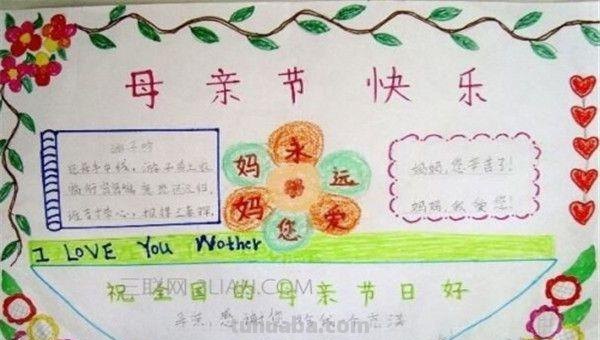 母亲节快乐
游子吟
慈母手中线，游子身上衣
临行密密缝，意恐迟迟归，
妈妈，您辛苦了！
妈妈，我爱您！
妈妈永远爱您
I LOVE You Wother
三联网 3LIAN.COM
祝全国的母亲节日好
母亲，感谢您
tuhuaba.com